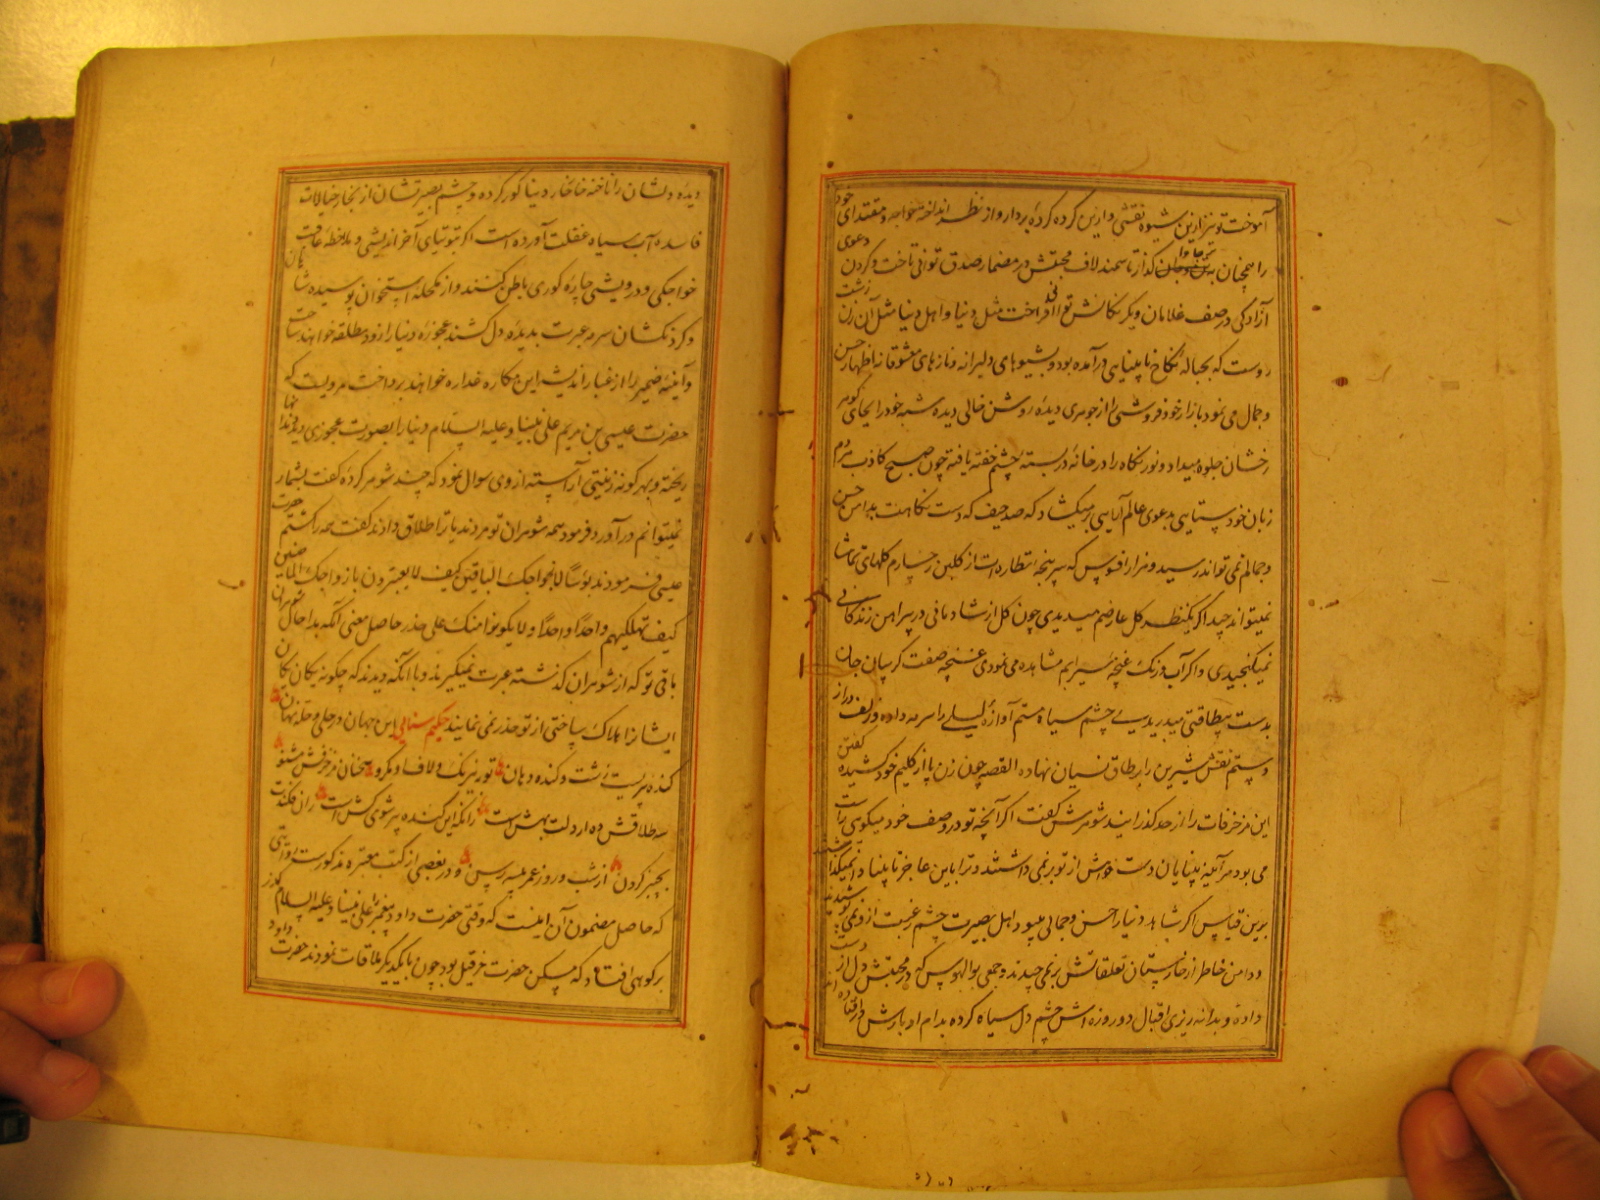 آموخت تو نیز از این شیوه نقشی وار این کرده کرده بردار و از نظر انداخته خواجه و مقتدای خود
را همچنان گذار تا سمند لاف محبتش در مضمار صدق توانی تاخت و کردن دعوی
آزادکی در صف غلامان ویکر نکانش توانی افراخت مثل دنیا و اهل دنیا مثل آن زن زشت
روست که بحباله نکاح نابینایی درآمده بود و بشیوهای دلبرانه و نازهای معشوقانه اظهار حسن
و جمال می نمود بازار خود فروشی را از جوهری دیده روشن خالی دیده شبه خود را بجای گوهر
رخشان جلوه میداد و نور نکاه را در خانه در بسته چشم خفته یافته چون صبح کاذب مردم
زبان خودستایی بدعوی عالم آرایی برمیکشاد که صد حیف که دست نکاهت بدامن حسن
و جمالم نمی تواند رسید و هزار افسوس که سرپنجه انتظار دلت از کلبن رخسارم کلهای تماشا
نمیتواند چید اگر یکنظر کل عارضم میدیدی چون کل از شادمانی در پیراهن زندگانی
نمیکنجیدی و اگر آب و رنک غنچه سیرابم مشاهده می نمودی غنچه صفت کریبان جان
بدست بیطاقتی میدریدی چشم سیاه مستم آوازه لیلی را سرمه داده و زلف دراز
و ستم نقش شیرین را بر طاق نسیان نهاده القصه چون زن پا از کلیم خود کشیده گفتن
این مزخرفات را از حد گذرانید شوهرش گفت اگر آنچه تو در وصف خود میکوی راست
می بود هر آینه بینایان دست خواهش از تو بر نمی داشتند و ترا باین عاجز نابینا وانمیکذاشتند
برین قیاس اگر شاهد دنیا را حسن و جمالی میبود اهل بصیرت چشم رغبت از و نمی پوشیدند
و دامن خاطر از خارستان تعلقاتش بر نمی چیدند و جمعی بوالهوس که در محبتش دل از دست
داده و بدانه ریزی اقبال دو روزه اش چشم دل سیاه کرده بدام ادبارش درافتاده اند
دیده دلشان را ناخنه خار دنیا کور کرده و چشم بصیرتشان از بخار خیالات
فاسده آب سیاه غفلت آورده است اگر بتوتیای آخر اندیشی و ملاحظه عاقبت
خواجکی و درویشی چاره کوری باطن کنند و از مکحله استخوان پوسیده شاهان
و کردنکشان سرمه عبرت بدیده دل کشند عجوزه دنیا را زود مطلقه خواهند ساخت
و آینه ضمیر را از غبار اندیشه این مکاره غداره خواهند پرداخت مرویست که
حضرت عیسی بن مریم علی نبینا و علیه السلام دنیا را بصورت عجوزی دید دندانها
ریخته و بهر کونه زینتی آراسته از وی سوال نمود که چند شوهر کرده گفت بشمار
نمیتوانم در آورد فرمود همه شوهران تو مردند یا ترا طلاق دادند گفت همه را کشتم حضرت
عیسی فرمودند بؤسا لازواجک الباقین کیف لا یعتبرون بازواجک الماضین
کیف تهلکیهم واحدا واحدا و لا یکونوا منک علی حذر حاصل معنی آنکه بدا حال شوهران
باقی تو که از شوهران گذشته عبرت نمیگیرند و با آنکه دیدند که چکونه یکان یکان
ایشانرا هلاک ساختی از تو حذر نمی نمایند حکیم سنایی این جهان در حلی و حله نهان
گنده پیریست زشت و گنده دهان تو ز نیرنک و لاف و مکر و سخنان مزخرفش مشنو
سه طلاقش ده ار دلت بهش است زانکه این گنده پیر شوی کش است
از شب و روز عمر میپرس و در بعضی از کتب معتبره مذکورست روایتی
که حاصل مضمون آن اینست که وقتی حضرت داود پیغمبر علی نبینا و علیه السلام گذر
بر کوهی افتاد که مسکن حضرت حزقیل بود چون با یکدیگر ملاقات نمودند حضرت داود